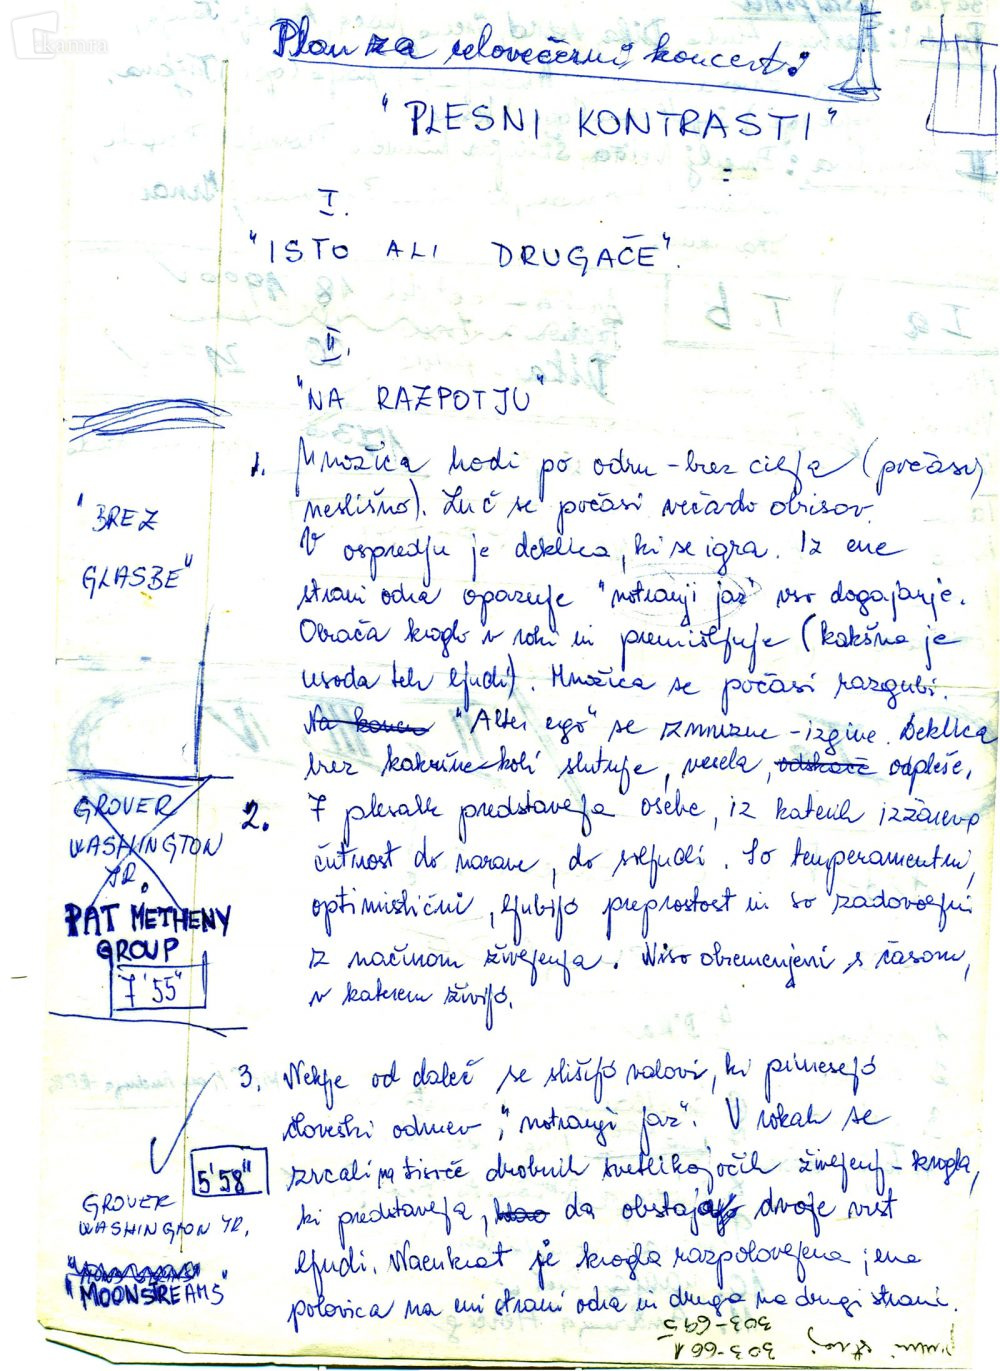 kamra
Plan za celovečerni koncert:
"PLESNI KONTRASTI"
I.
"ISTO ALI DRUGAČE".
II.
"NA RAZPOTJU"
"BREZ
GLASBE"
1. Množica hodi po odru - brez cilja (počasi,
neslišno). Luč se počasi veča do obrisov.
V ospredju je deklica, ki se igra. Iz ene
strani odra opazuje "notranji jaz" vso dogajanje.
Obrača kroglo v roki in premišljuje (kakšna je
usoda teh ljudi). Množica se počasi razgubi.
Na koncu "Alter ego" se izmuzne - izgine. Deklica
brez kakršne-koli slutnje, vesela, odskače odpleše.
GROVER
WASHINGTON
JR.
PAT METHENY
GROUP
7'55"
2. 7 plesalk predstavlja osebe, iz katerih izžareva
čutnost do narave, do ljudi. So temperamentni,
optimistični, ljubijo preprostost in so zadovoljni
z načinom življenja. Niso obremenjeni s časom,
v katerem živijo.
3. Nekje od daleč se slišijo valovi, ki prinesejo
človeški odmev, "notranji jaz". V rokah se
zrcali na tisoče drobnih svetlikajočih življenj - krogla,
ki predstavlja, da obstaja dvoje vrst
ljudi. Naenkrat je krogla razpolovljena; ena
polovica na eni strani odra in druga na drugi strani.
5'58"
GROVER
WASHINGTON JR.
"MOONSTREAMS"
303-695
303-661